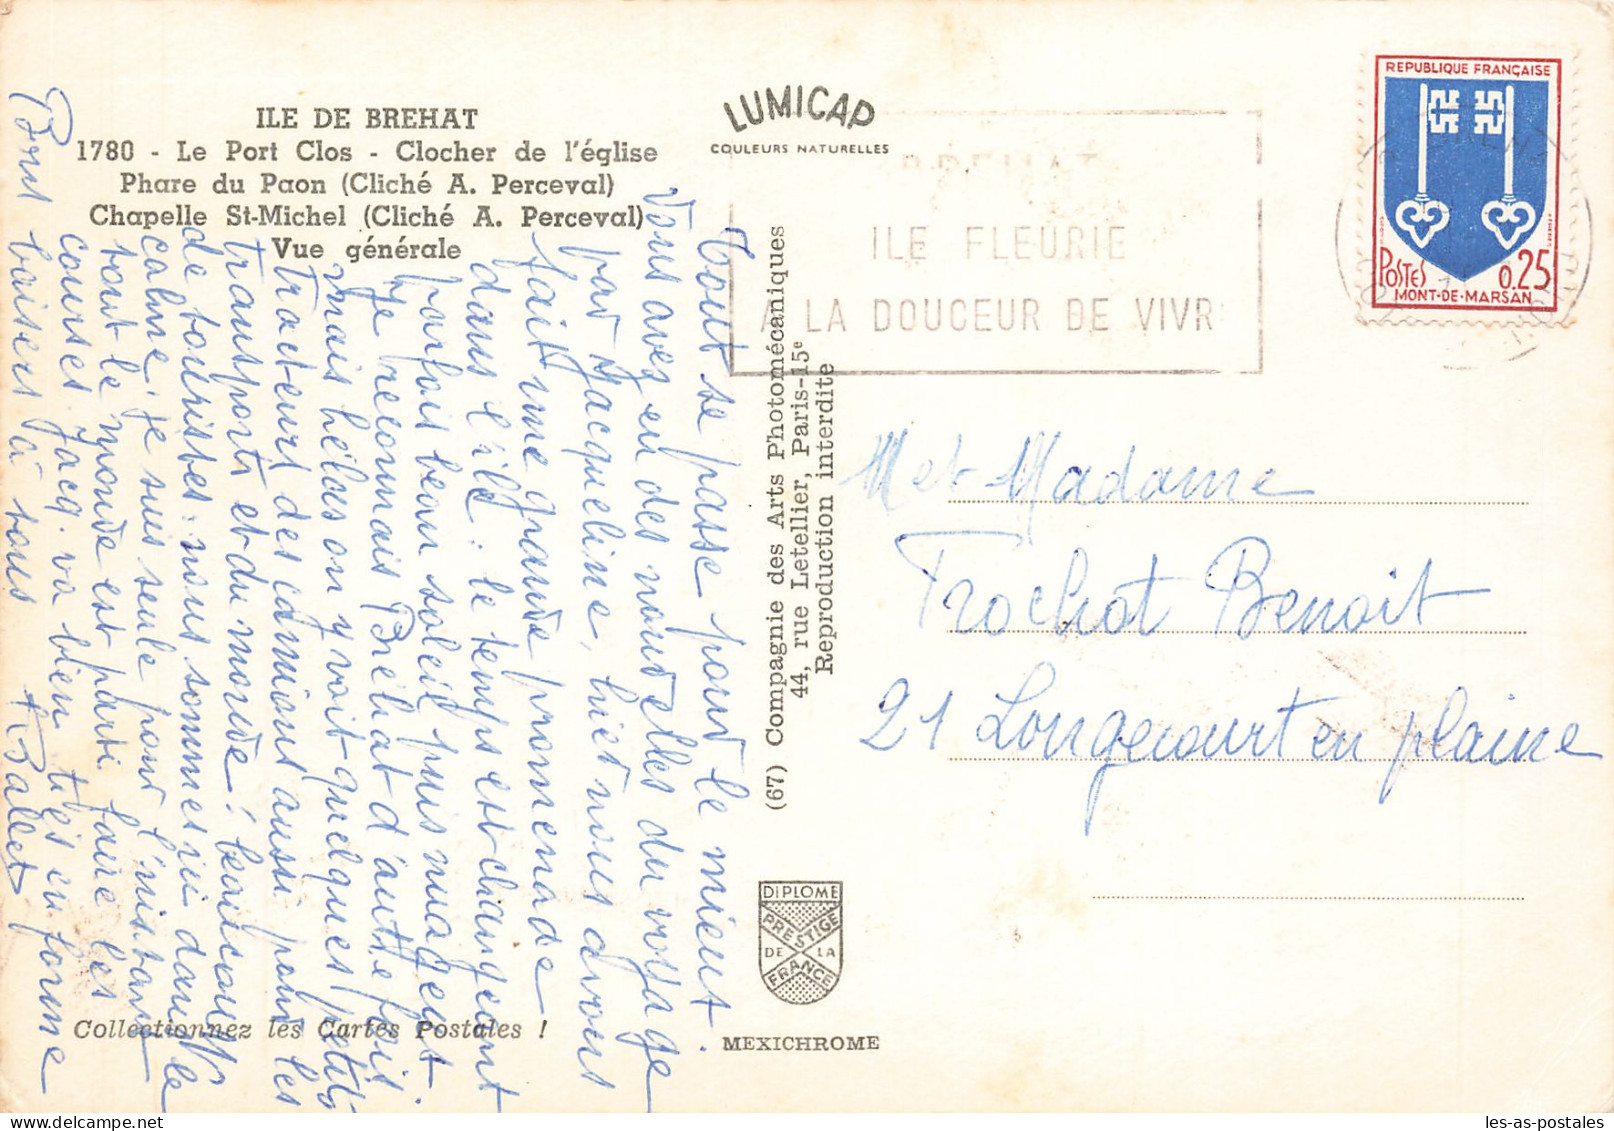 ILE DE BREHAT
1780 - Le Port Clos - Clocher de l'église
Phare du Paon (Cliché A. Perceval)
Chapelle St-Michel (Cliché A. Perceval)
Vue générale
LUMICAP
COULEURS NATURELLES
BREHAT
ILE FLEURIE
A LA DOUCEUR DE VIVR
REPUBLIQUE FRANÇAISE
POSTES 0,25
MONT-DE-MARSAN
Tout se passe pour le mieux.
Vous avez eu des nouvelles du voyage
par Jacqueline, hier nous avons
fait une grande promenade
dans l'île : le temps est changeant
parfois beau soleil puis nuageux.
Je reconnais Bréhat d'autrefois
mais hélas on y voit quelques petits
tracteurs des camions aussi pour les
transports et du monde ! beaucoup
de touristes. nous sommes ici dans le
calme. je suis seule pour l'instant
tout le monde est parti faire les
courses. Jacq. va bien très en forme
Bons baisers à tous
(67) Compagnie des Arts Photomécaniques
44, rue Letellier, Paris-15e
Reproduction interdite
M et Madame
Trochot Benoit
21 Longecourt en plaine
DIPLOME
PRESTIGE
DE LA
FRANCE
Collectionnez les Cartes Postales !
MEXICHROME
les-as-postales.com